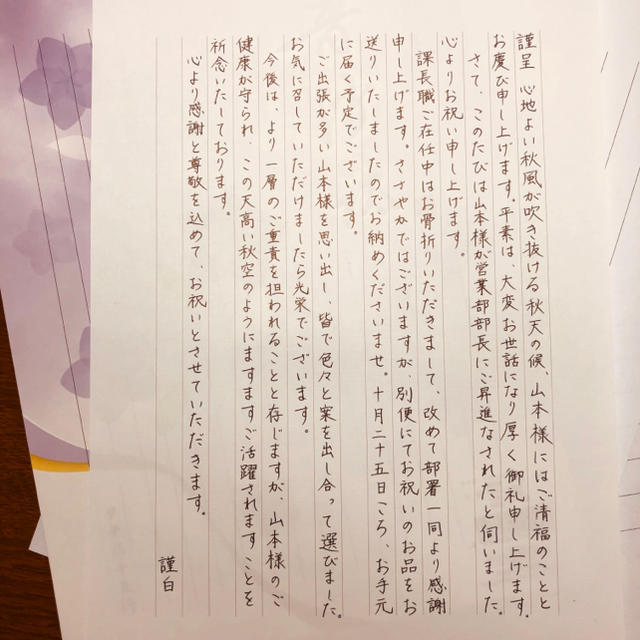 謹呈 心地よい秋風が吹き抜ける秋天の候、山本様にはご清福のことと
お慶び申し上げます。平素は、大変お世話になり厚く御礼申し上げます。
さて、このたびは山本様が営業部部長にご昇進なされたと伺いました。
心よりお祝い申し上げます。
課長職ご在任中はお骨折りいただきまして、改めて部署一同より感謝
申し上げます。ささやかではございますが、別便にてお祝いのお品をお
送りいたしましたのでお納めくださいませ。十月二十五日ころ、お手元
に届く予定でございます。
ご出張が多い山本様を思い出し、皆で色々と案を出し合って選びました。
お気に召していただけましたら光栄でございます。
今後は、より一層のご重責を担われることと存じますが、山本様のご
健康が守られ、この天高い秋空のようにますますご活躍されますことを
祈念いたしております。
心より感謝と尊敬を込めて、お祝いとさせていただきます。
謹白